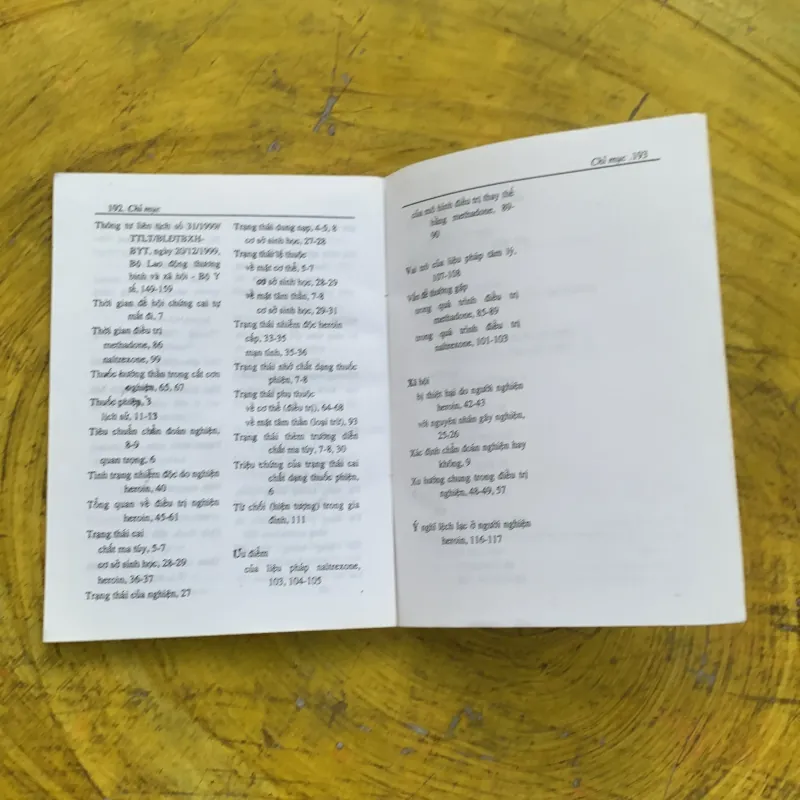 392. Chỉ mục
Thông tư liên tịch số 31/1999/
TTLT/BLĐTBXH-
BYT, ngày 20/12/1999,
Bộ Lao động thương
binh và xã hội - Bộ Y
tế, 149-159
Thời gian để hội chứng cai tự
mất đi, 7
Thời gian điều trị
methadone, 86
naltrexone, 99
Thuốc hướng thần trong cắt cơn
nghiện, 65, 67
Thuốc phiện, 3
lịch sử, 11-13
Tiêu chuẩn chẩn đoán nghiện,
8-9
quan trọng, 6
Tình trạng nhiễm độc do nghiện
heroin, 40
Tổng quan về điều trị nghiện
heroin, 45-61
Trạng thái cai
chất ma túy, 5-7
cơ sở sinh học, 28-29
heroin, 36-37
Trạng thái của nghiện, 27
Trạng thái dung nạp, 4-5, 8
cơ sở sinh học, 27-28
Trạng thái lệ thuộc
về mặt cơ thể, 5-7
cơ sở sinh học, 28-29
về mặt tâm thần, 7-8
cơ sở sinh học, 29-31
Trạng thái nhiễm độc heroin
cấp, 33-35
mạn tính, 35-36
Trạng thái nhớ chất dạng thuốc
phiện, 7-8
Trạng thái phụ thuộc
về cơ thể (điều trị), 64-68
về mặt tâm thần (loại trừ), 93
Trạng thái thèm trường diễn
chất ma túy, 7-8, 30
Triệu chứng của trạng thái cai
chất dạng thuốc phiện,
6
Từ chối (hiện tượng) trong gia
đình, 111
Ưu điểm
của liệu pháp naltrexone,
103, 104-105
Chỉ mục. 393
của mô hình điều trị thay thế
bằng methadone, 89-
90
Vai trò của liệu pháp tâm lý,
107-108
Vấn đề thường gặp
trong quá trình điều trị
methadone, 85-89
trong quá trình điều trị
naltrexone, 101-103
Xã hội
bị thiệt hại do người nghiện
heroin, 42-43
với nguyên nhân gây nghiện,
25-26
Xác định chẩn đoán nghiện hay
không, 9
Xu hướng chung trong điều trị
nghiện, 48-49, 57
Ý nghĩ lệch lạc ở người nghiện
heroin, 116-117